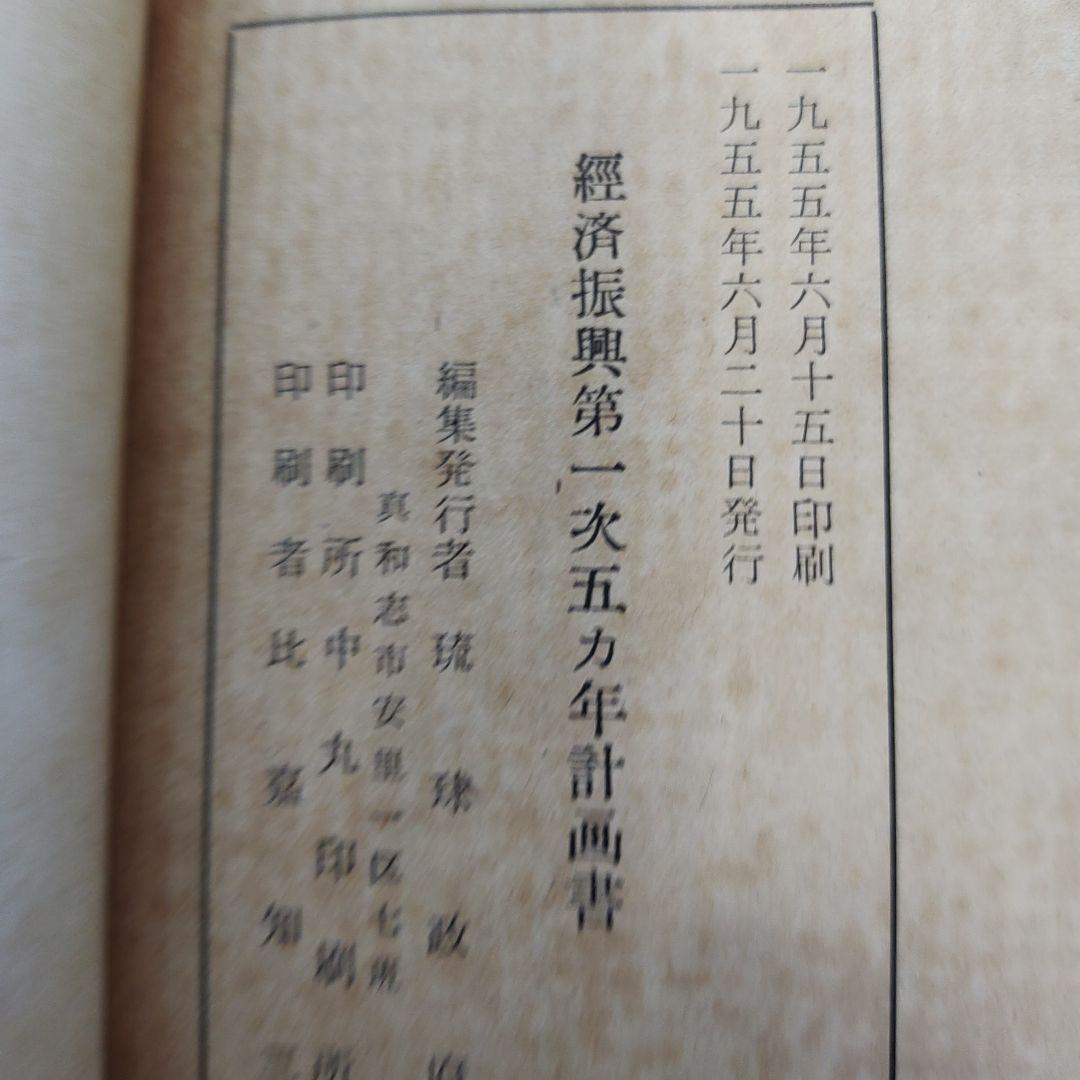 一九五五年六月十五日印刷
一九五五年六月二十日発行
經済振興第一次五カ年計画書
編集発行者 琉球政府
真和志市安里一区七班
印刷所 中丸印刷所
印刷者 比嘉知